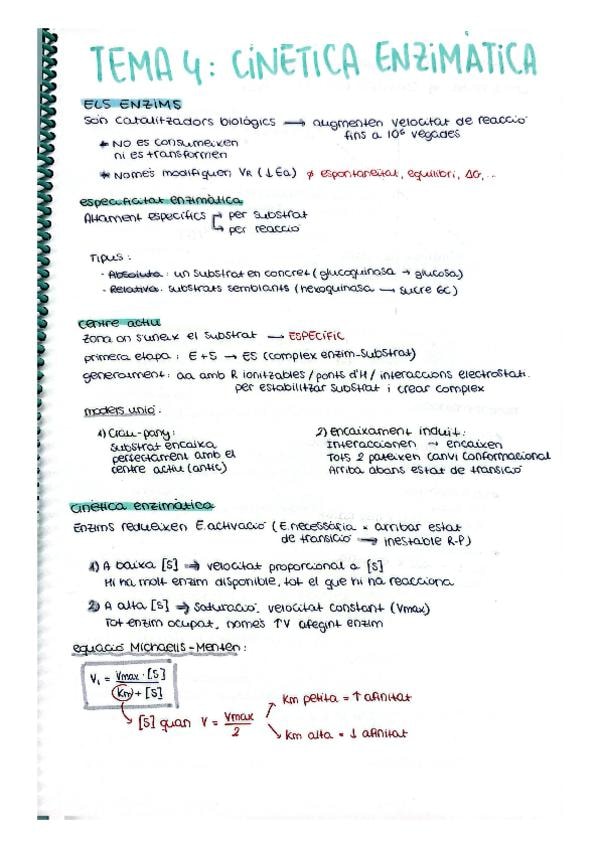 TEMA 4: CINÈTICA ENZIMÀTICA
ELS ENZIMS
Són catalitzadors biològics → augmenten velocitat de reacció
fins a 10⁶ vegades
* No es consumeixen
ni es transformen
* Només modifiquen VR (↓Ea) ≠ espontaneïtat, equilibri, ΔG, ...
especificitat enzimàtica
Altament específics → per substrat
→ per reacció
TIPUS:
- Absoluta: un substrat en concret (glucoquinasa → glucosa)
- Relativa: substrats semblants (hexoquinasa → sucre 6C)
centre actiu
zona on s'uneix el substrat → ESPECÍFIC
primera etapa: E+S → ES (complex enzim-substrat)
generalment: aa amb R ionitzables / ponts d'H / interaccions electrostàt.
per estabilitzar substrat i crear complex
models unió:
1) Clau-pany:
substrat encaixa
perfectament amb el
centre actiu (antic)
2) encaixament induït:
Interaccionen → encaixen
Tots 2 pateixen canvi conformacional
Arriba abans estat de transició
cinètica enzimàtica
Enzims redueixen E.activació (E.necessària x arribar estat
de transició → inestable R-P)
1) A baixa [S] ⇒ velocitat proporcional a [S]
Hi ha molt enzim disponible, tot el que hi ha reacciona
2) A alta [S] ⇒ saturació: velocitat constant (Vmax)
Tot enzim ocupat, només ↑V afegint enzim
equació Michaelis-Menten:
V₁ = Vmax · [S]
Km + [S]
[S] quan V = Vmax
2
Km petita = ↑ afinitat
Km alta = ↓ afinitat